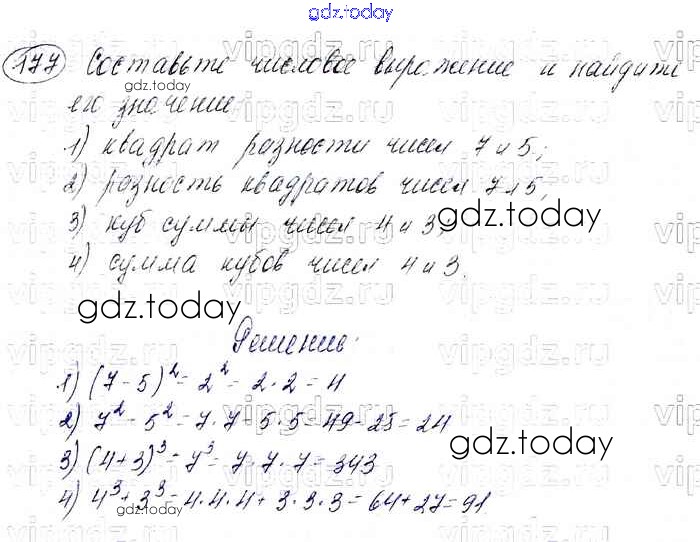 gdz.today
177 Составьте числовое выражение и найдите
его значение
1) квадрат разности чисел 7 и 5;
2) разность квадратов чисел 7 и 5;
3) куб суммы чисел 4 и 3;
gdz.today
4) сумма кубов чисел 4 и 3.
gdz.today
Решение:
1) (7 - 5)² = 2² = 2 · 2 = 4
2) 7² - 5² = 7 · 7 - 5 · 5 = 49 - 25 = 24
3) (4 + 3)³ = 7³ = 7 · 7 · 7 = 343
gdz.today
4) 4³ + 3³ = 4 · 4 · 4 + 3 · 3 · 3 = 64 + 27 = 91
gdz.today
vipgdz.ru